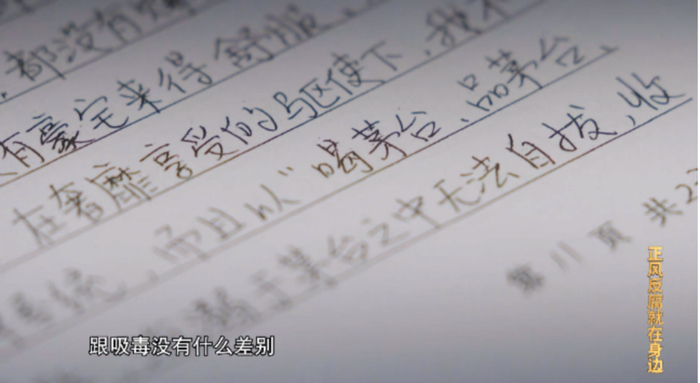 都没有
有豪宅来得舒服,
在奢靡享受的驱使下,我不
,而且以“喝茅台、品茅台、
溺于茅台之中无法自拔,收
第11页 共2
跟吸毒没有什么差别
正风反腐就在身边